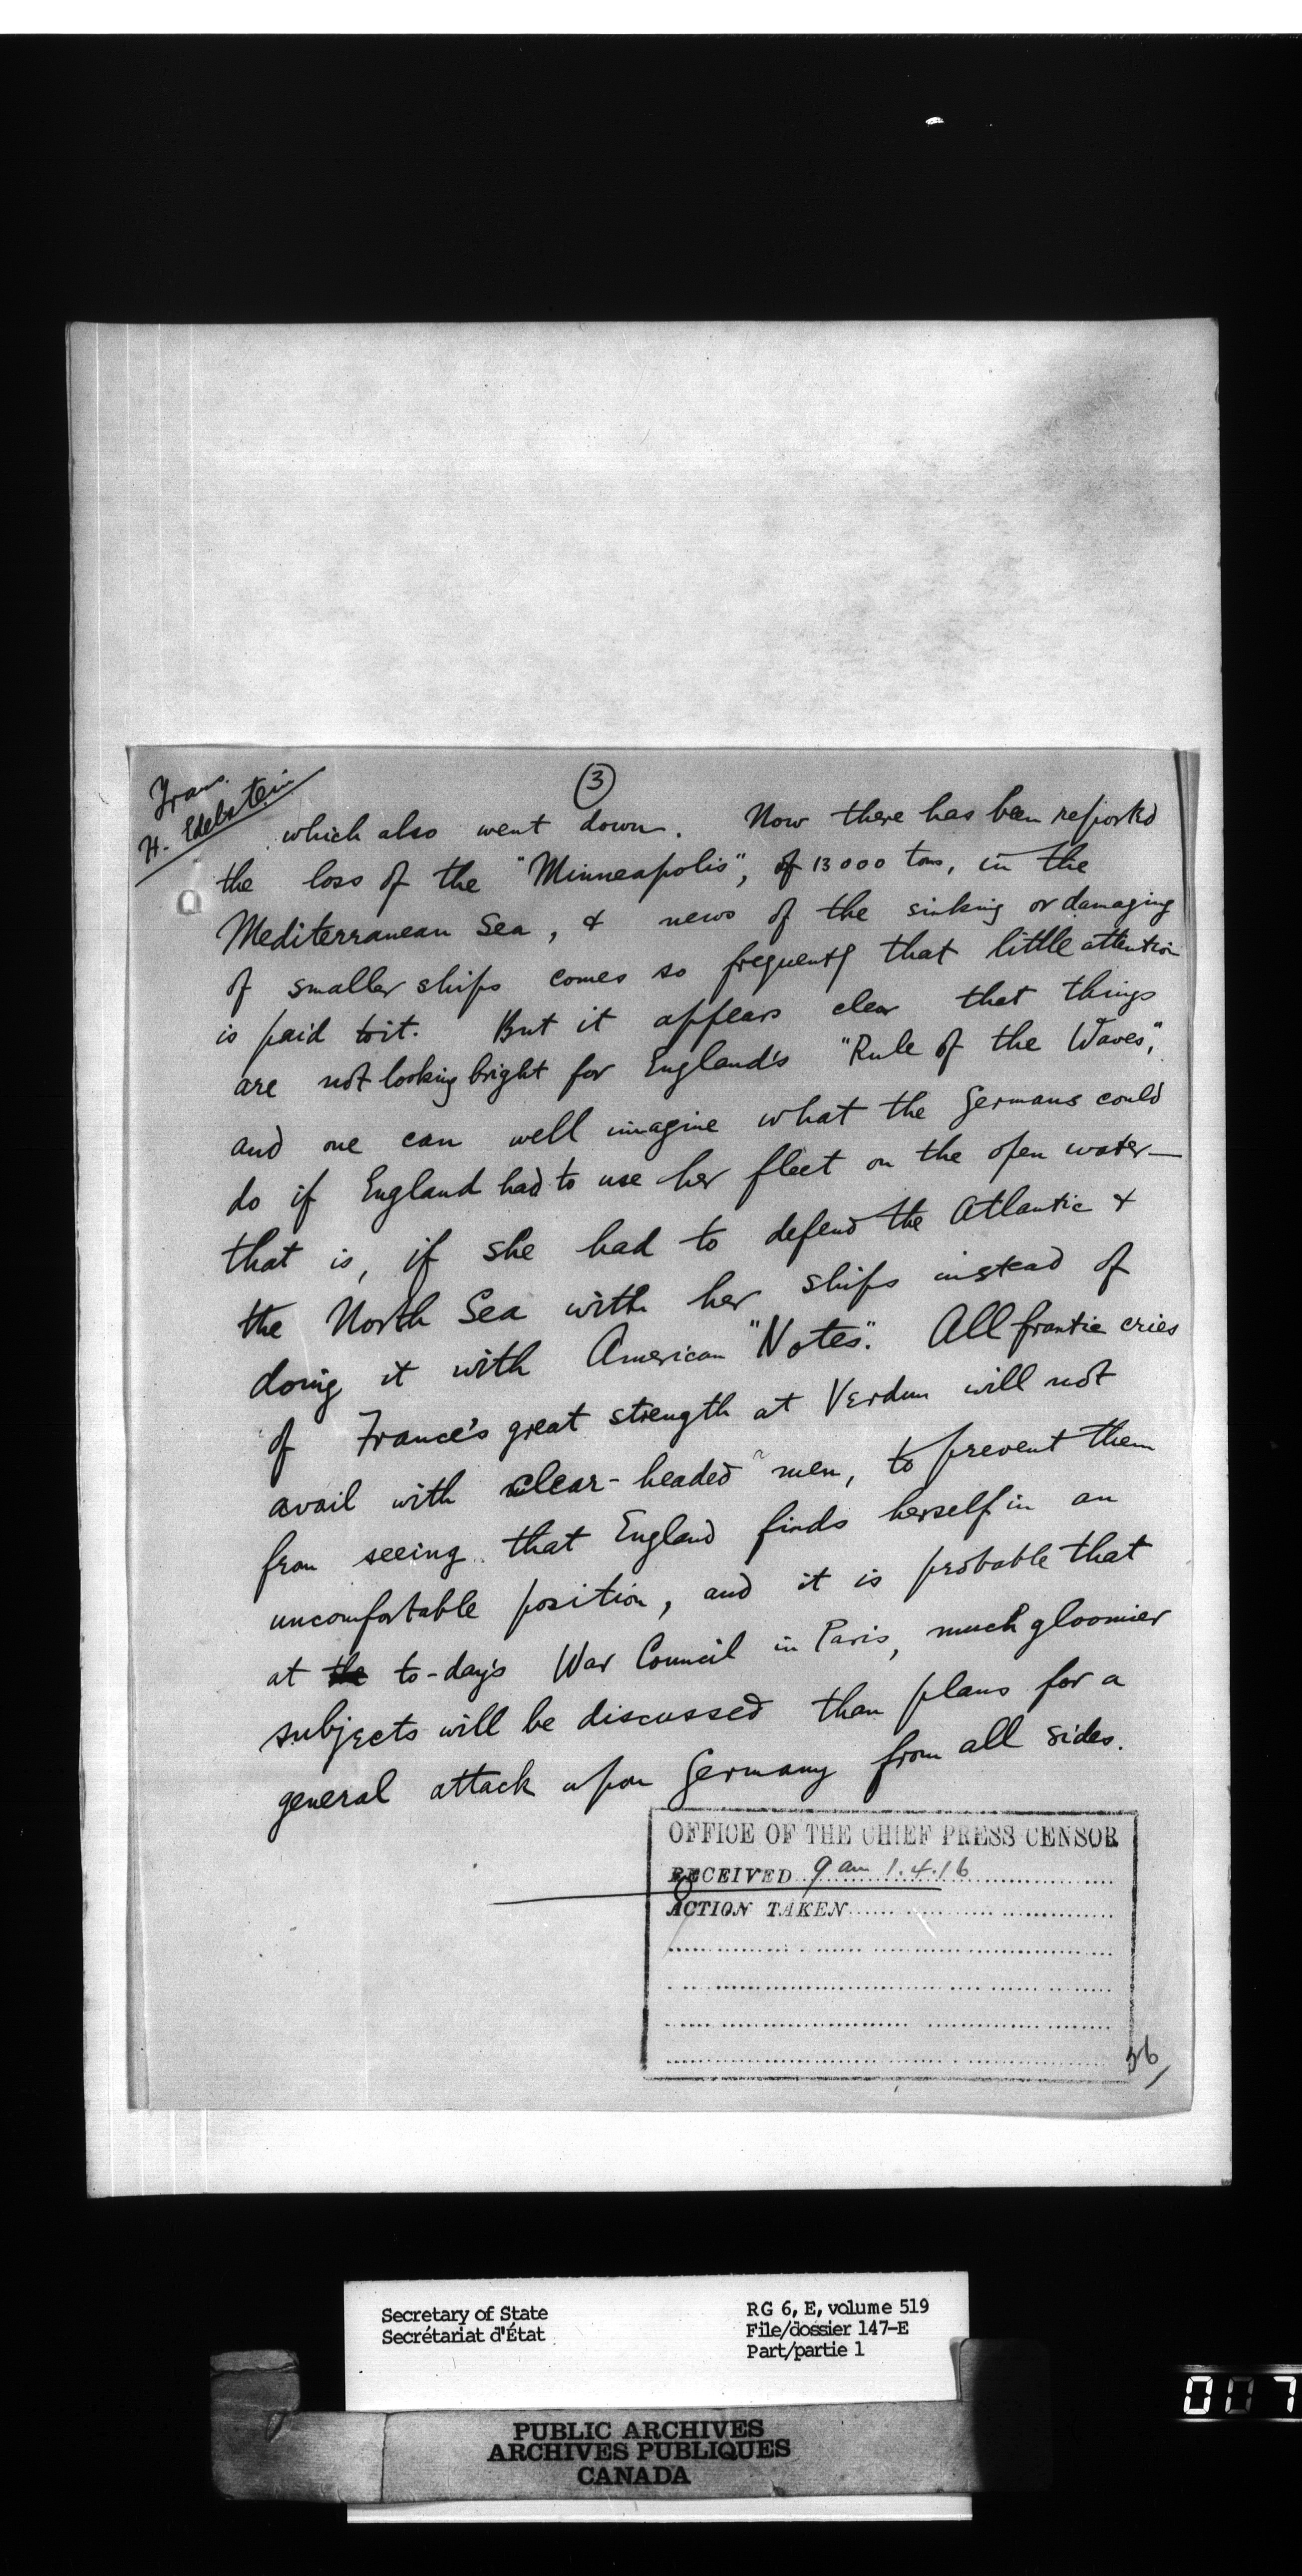 Trans.
H. Edelstein
3
which also went down. Now there has been reported
the loss of the "Minneapolis", of 13000 tons, in the
Mediterranean Sea, & news of the sinking or damaging
of smaller ships comes so frequently that little attention
is paid to it. But it appears clear that things
are not looking bright for England's "Rule of the Waves",
and one can well imagine what the Germans could
do if England had to use her fleet on the open water—
that is, if she had to defend the Atlantic &
the North Sea with her ships instead of
doing it with American "Notes". All frantic cries
of France's great strength at Verdun will not
avail with clear-headed men, to prevent them
from seeing that England finds herself in an
uncomfortable position, and it is probable that
at the to-day's War Council in Paris, much gloomier
subjects will be discussed than plans for a
general attack upon Germany from all sides.
OFFICE OF THE CHIEF PRESS CENSOR
RECEIVED 9 am 1.4.16
ACTION TAKEN
56
Secretary of State
Secrétariat d'État
RG 6, E, volume 519
File/dossier 147-E
Part/partie 1
PUBLIC ARCHIVES
ARCHIVES PUBLIQUES
CANADA
007